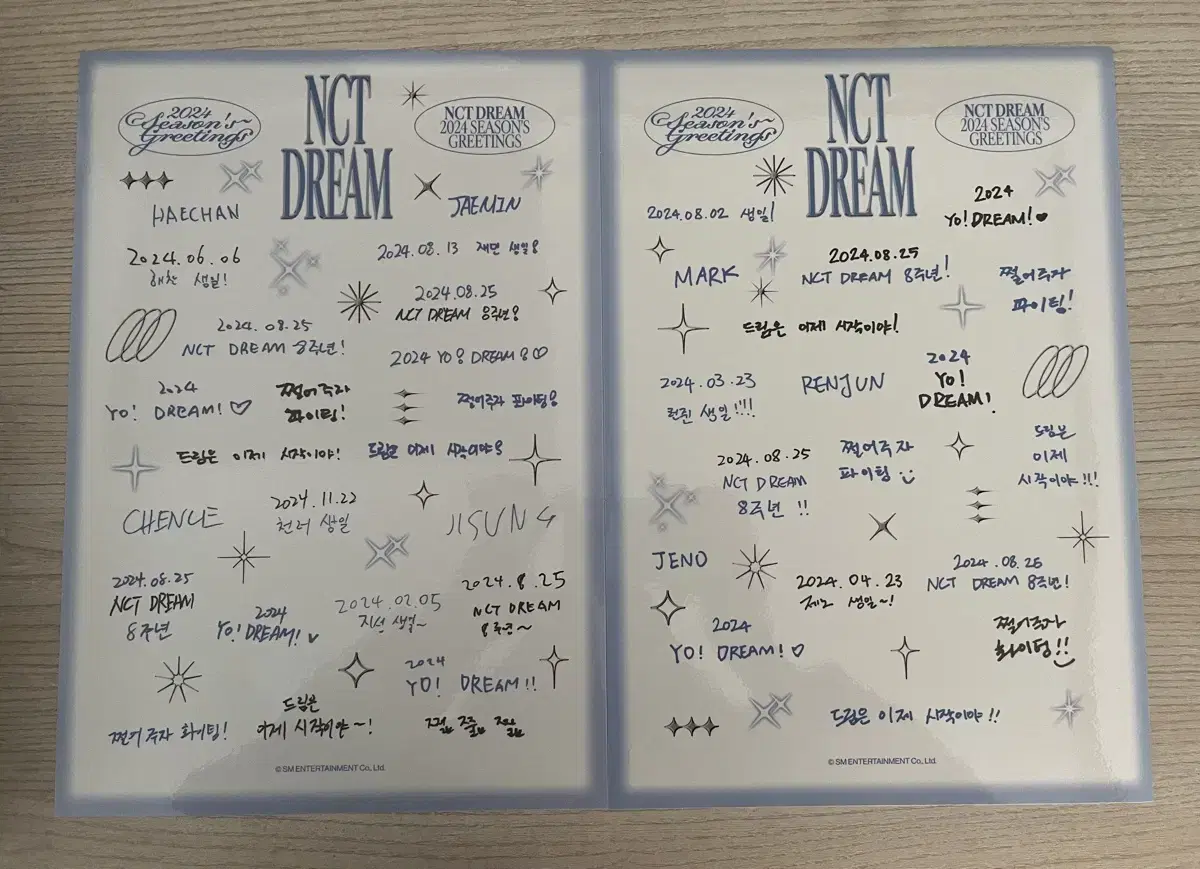 2024
Season's
Greetings
NCT
DREAM
NCT DREAM
2024 SEASON'S
GREETINGS
HAECHAN
JAEMIN
2024.06.06
해찬 생일!
2024.08.13 재민 생일!
2024.08.25
NCT DREAM 8주년!
2024.08.25
NCT DREAM 8주년!
2024 YO! DREAM!♡
2024
YO! DREAM!♡
쩔어주자
파이팅!
쩔어주자 파이팅!
드림은 이제 시작이야!
드림은 이제 시작이야!
CHENLE
2024.11.22
천러 생일
JISUNG
2024.08.25
NCT DREAM
8주년
2024
YO! DREAM!
2024.02.05
지성 생일~
2024.8.25
NCT DREAM
8주년~
2024
YO! DREAM!!
쩔어주자 화이팅!
드림은
이제 시작이야~!
© SM ENTERTAINMENT Co., Ltd.
2024
Season's
Greetings
NCT
DREAM
NCT DREAM
2024 SEASON'S
GREETINGS
2024.08.02 생일!
2024
YO! DREAM!♥
MARK
2024.08.25
NCT DREAM 8주년!
쩔어주자
파이팅!
드림은 이제 시작이야!
2024.03.23
런쥔 생일!!!
RENJUN
2024
YO!
DREAM!
2024.08.25
NCT DREAM
8주년 !!
쩔어주자
파이팅
드림은
이제
시작이야!!!
JENO
2024.04.23
제노 생일~!
2024.08.25
NCT DREAM 8주년!
2024
YO! DREAM!♡
쩔어주자
화이팅!!
드림은 이제 시작이야!!
© SM ENTERTAINMENT Co., Ltd.